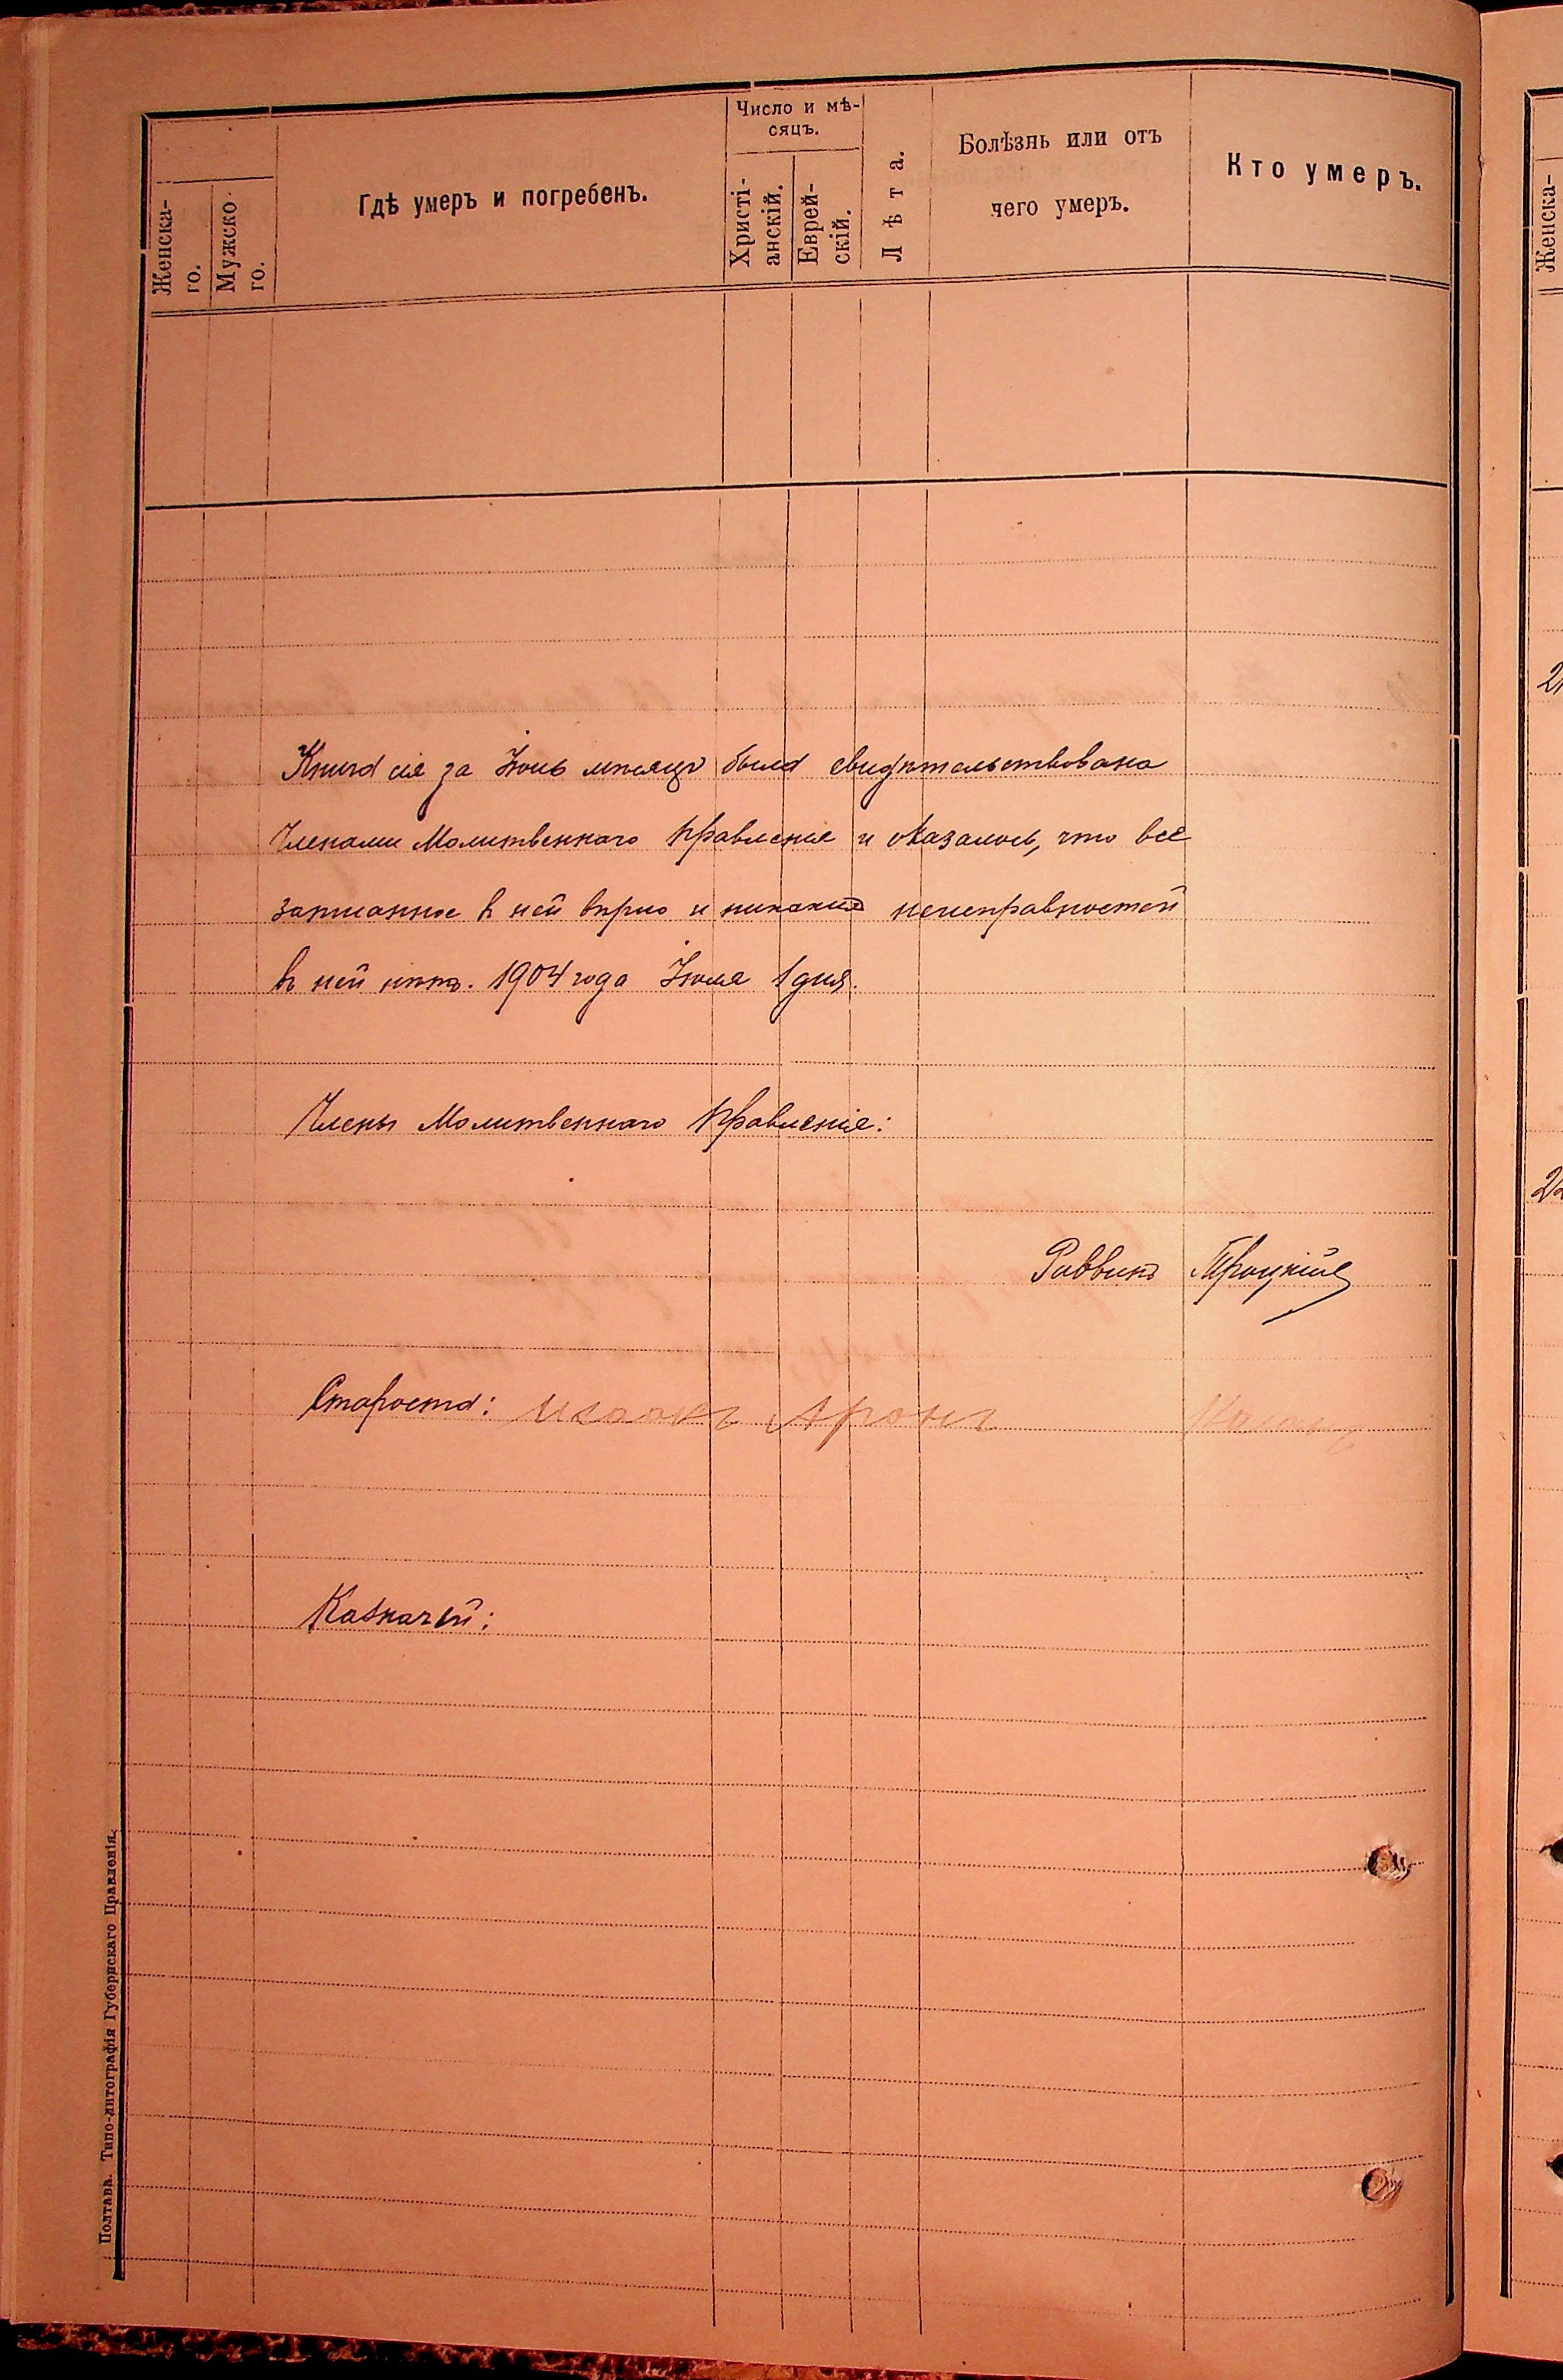 Число и мѣ-
сяцъ.
Женска-
го.
Мужско-
го.
Гдѣ умеръ и погребенъ.
Христі-
анскій.
Еврей-
скій.
Лѣта.
Болѣзнь или отъ
чего умеръ.
Кто умеръ.
Женска-
Книга сія за Іюнь мѣсяцъ была свидѣтельствована
Членами Молитвеннаго Правленія и оказалось, что все
записанное въ ней вѣрно и никакихъ неисправностей
въ ней нѣтъ. 1904 года Іюля 1 дня.
Члены Молитвеннаго Правленія:
Раввинъ Троцкій
Староста: Исаакъ Аронъ
Казначей:
Полтава. Типо-литографія Губернскаго Правленія.